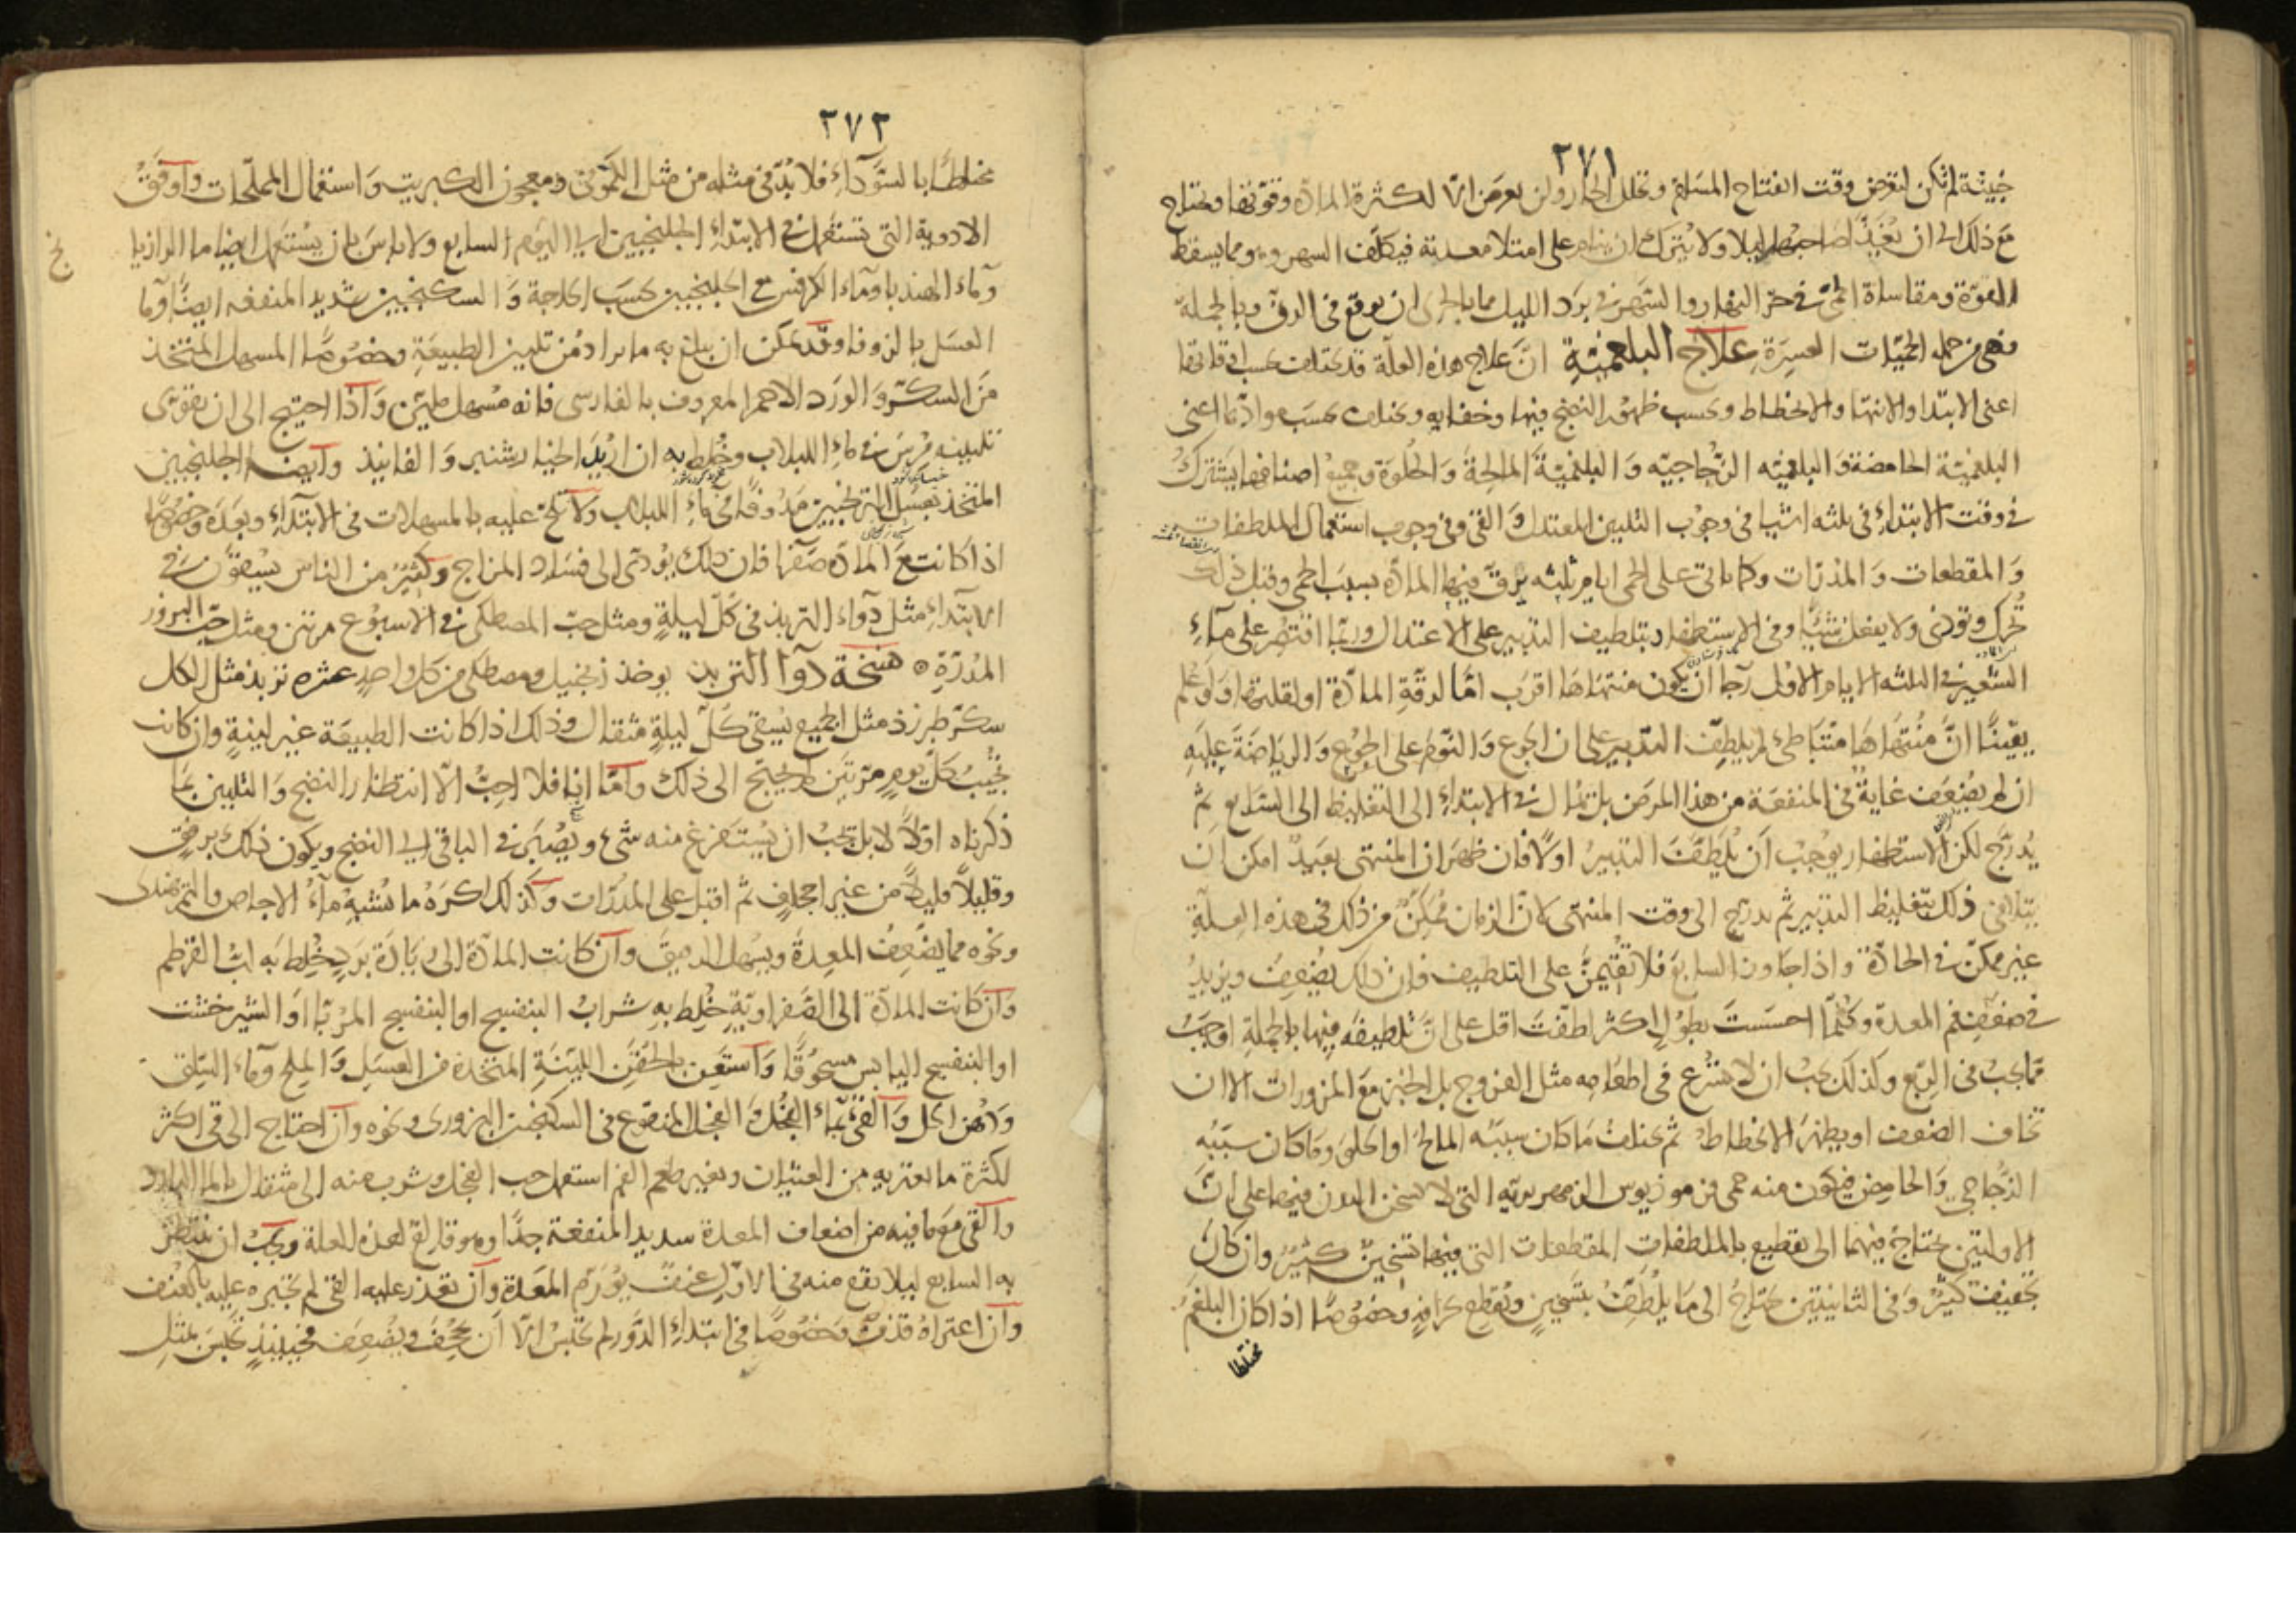 ٢٧١
خبيثة لم تكن لتعرض وقت انفتاح المسام وتخلل الحار ولن يعرض الا لكثرة المادة وقوتها ويحتاج
مع ذلك الى ان يغذا صاحبها ليلا ولا يترك ان ينام على امتلا معدته فيكلف السهر وهو مما يسقط
القوة ومقاساة الحمى في حر النهار والسهر في برد الليل مما بالحرى ان يوقع في الدق وبالجملة
فهى من جملة الحميات العسرة علاج البلغمية ان علاج هذه العلة قد يختلف بحسب اوقاتها
اعنى الابتدا والانتها والانحطاط وبحسب ظهور النضج فيها وخفايه ويختلف بحسب موادها اعنى
البلغمية الحامضة والبلغميه الزجاجيه والبلغمية المالحة والحلوة وجميع اصنافها يشترك
في وقت الابتداء في ثلثه اشيا في وجوب التليين المعتدل والقى وفى وجوب استعمال الملطفات
والمقطعات والمدرات وكما ياتى على الحمى ايام ثلثه يرق فيها المادة بسبب الحمى وقبل ذلك
تحرك وتوذى ولا يفعل شيئا وفى الاستظهار بتلطيف التدبير على الاعتدال وربما اقتصر على ماء
الشعير في الثلثه الايام الاول رجا ان يكون منتهاها اقرب اما لرقة المادة او لقلتها ولو علم
يقينا ان منتهاها متباطئ لم يلطف التدبير على ان الجوع والنوم على الجوع والرياضة عليه
ان لم يضعف غاية في المنفعة من هذا المرض بل يمال في الابتداء الى التغليظ الى السابع ثم
يدرج لكن الاستظهار يوجب ان يلطف التدبير اولا فان ظهر ان المنتهى بعيد امكن ان
يتلافى ذلك بتغليظ التدبير ثم يدرج الى وقت المنتهى لان الزمان ممكن من ذلك فى هذه العلة
غير ممكن في الحادة واذا جاوز السابع فلا تقيمن على التلطيف فان ذلك يضعف ويزيد
في ضعف فم المعدة وكلما احسست بطول اكثر لطفت اقل على ان تلطيفه فيها بالجملة اوجب
مما يجب فى الربع وكذلك يجب ان لا تشرع فى اطعامه مثل الفروج بل الخبز مع المزورات الا ان
تخاف الضعف او يظهر الانحطاط ثم يختلف ما كان سببه المالح او الحلو وما كان سببه
الزجاجى والحامض فيكون منه حمى
الاوليين يحتاج فيهما الى تقطيع بالملطفات المقطعات التى فيها تسخين كثير وان كان
تجفيف كثير وفى الثانيتين يحتاج الى ما يلطف بتسخين وتقطيع بحرافة وخصوصا اذا كان البلغم
مختلطا
٢٧٢
مختلطا بالسوداء فلا بد فى مثله من مثل الكمونى ومعجون الكبريت واستعمال المملحات واوفق
الادوية التى تستعمل فى الابتداء الجلنجبين الى اليوم السابع ولا باس بان يستعمل ايضا ما الرازيا
وماء الهندبا وماء الكرفس مع الجلنجبين بحسب الحاجة والسكنجبين شديد المنفعه ايضا وما
العسل بالزوفا وقد يمكن ان يبلغ به ما يراد من تليين الطبيعة وخصوصا المسهل المتخذ
من السكر والورد الاحمر المعروف بالفارسى فانه مسهل ملين واذا احتيج الى ان يقوى
تليينه مرس في ماء اللبلاب وخلط به ان اريد الخيارشنبر والفانيذ وايضا الجلنجبين
المتخذ بعسل الترنجبين مدوفا فى ماء اللبلاب ولا تلح عليه بالمسهلات فى الابتداء وبعده وخصوصا
اذا كانت مع المادة صفرا فان ذلك يودى الى فساد المزاج وكثير من الناس يسقون في
الابتداء مثل دواء التربذ فى كل ليلة ومثل حب المصطكى فى الاسبوع مرتين ومثل حب البزور
المدرة نسخة دوا التربذ يوخذ زنجبيل ومصطكى من كل واحد عشرة تربذ مثل الكل
سكر طبرزذ مثل الجميع يسقى كل ليلة مثقال وذلك اذا كانت الطبيعة غير لينة وان كانت
تجيب كل يوم مرتين لم يحتج الى ذلك واما انا فلا احب الا انتظار النضج والتليين بما
ذكرناه اولا لا بل يجب ان يستفرغ منه شىء ويصبر في الباقى الى النضج ويكون ذلك برفق
وقليلا قليلا من غير اجحاف ثم اقبل على المدرات وكذلك اكره ما يشبه ماء الاجاص والتمرهندى
ونحوه مما يضعف المعدة ويسهل الرقيق وان كانت المادة الى زيادة برد خلط به لب القرطم
وان كانت المادة الى الصفراوية خلط به شراب البنفسج او البنفسج المربا او الشيرخشت
او البنفسج اليابس مسحوقا واستعن بالحقن اللينة المتخذة من العسل والملح وماء السلق
ودهن الحل والقى بماء الفجل والفجل المنقوع فى السكنجبين البزورى ونحوه وان احتاج الى قى اكثر
لكثرة ما يعتريه من الغثيان وتغير طعم الفم استعمل حب الفجل وشرب منه الى مثقال بالما البارد
والقى مع ما فيه من اضعاف المعدة شديد المنفعة جدا وهو قالع لهذه العلة ويجب ان ينتظر
به السابع ليلا يقع منه فى الاول عنف يورم المعدة وان تعذر عليه القى لم تجبره عليه بالعنف
وان اعتراه قذف وخصوصا فى ابتداء الدور لم تحبس الا ان يجحف ويضعف فحينئذ تحبس بمثل